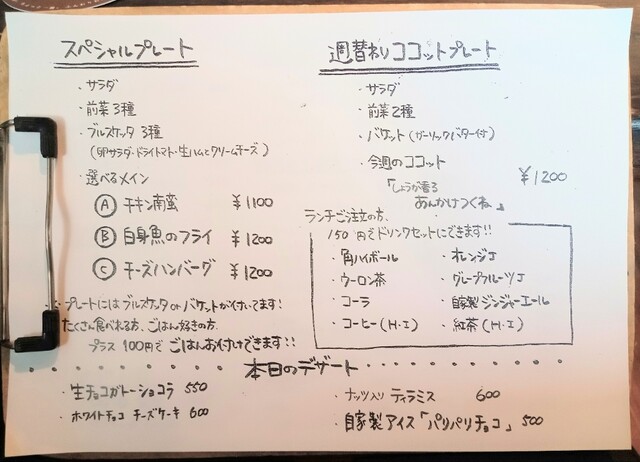 スペシャルプレート
・サラダ
・前菜3種
・ブルスケッタ 3種
(卵サラダ・ドライトマト・生ハムとクリームチーズ)
・選べるメイン
Ⓐ チキン南蛮 ¥1100
Ⓑ 白身魚のフライ ¥1200
Ⓒ チーズハンバーグ ¥1200
プレートにはブルスケッタ or バケットが付いてます!
たくさん食べれる方、ごはん好きの方、
プラス100円でごはんお付けできます!!
週替わりココットプレート
・サラダ
・前菜2種
・バケット(ガーリックバター付)
・今週のココット
「しょうが香る
あんかけつくね」
¥1200
ランチご注文の方、
150円でドリンクセットにできます!!
・角ハイボール ・オレンジJ
・ウーロン茶 ・グレープフルーツJ
・コーラ ・自家製ジンジャーエール
・コーヒー(H・I) ・紅茶(H・I)
本日のデザート
・生チョコガトーショコラ 550
・ホワイトチョコ チーズケーキ 600
・ナッツ入りティラミス 600
・自家製アイス「パリパリチョコ」 500